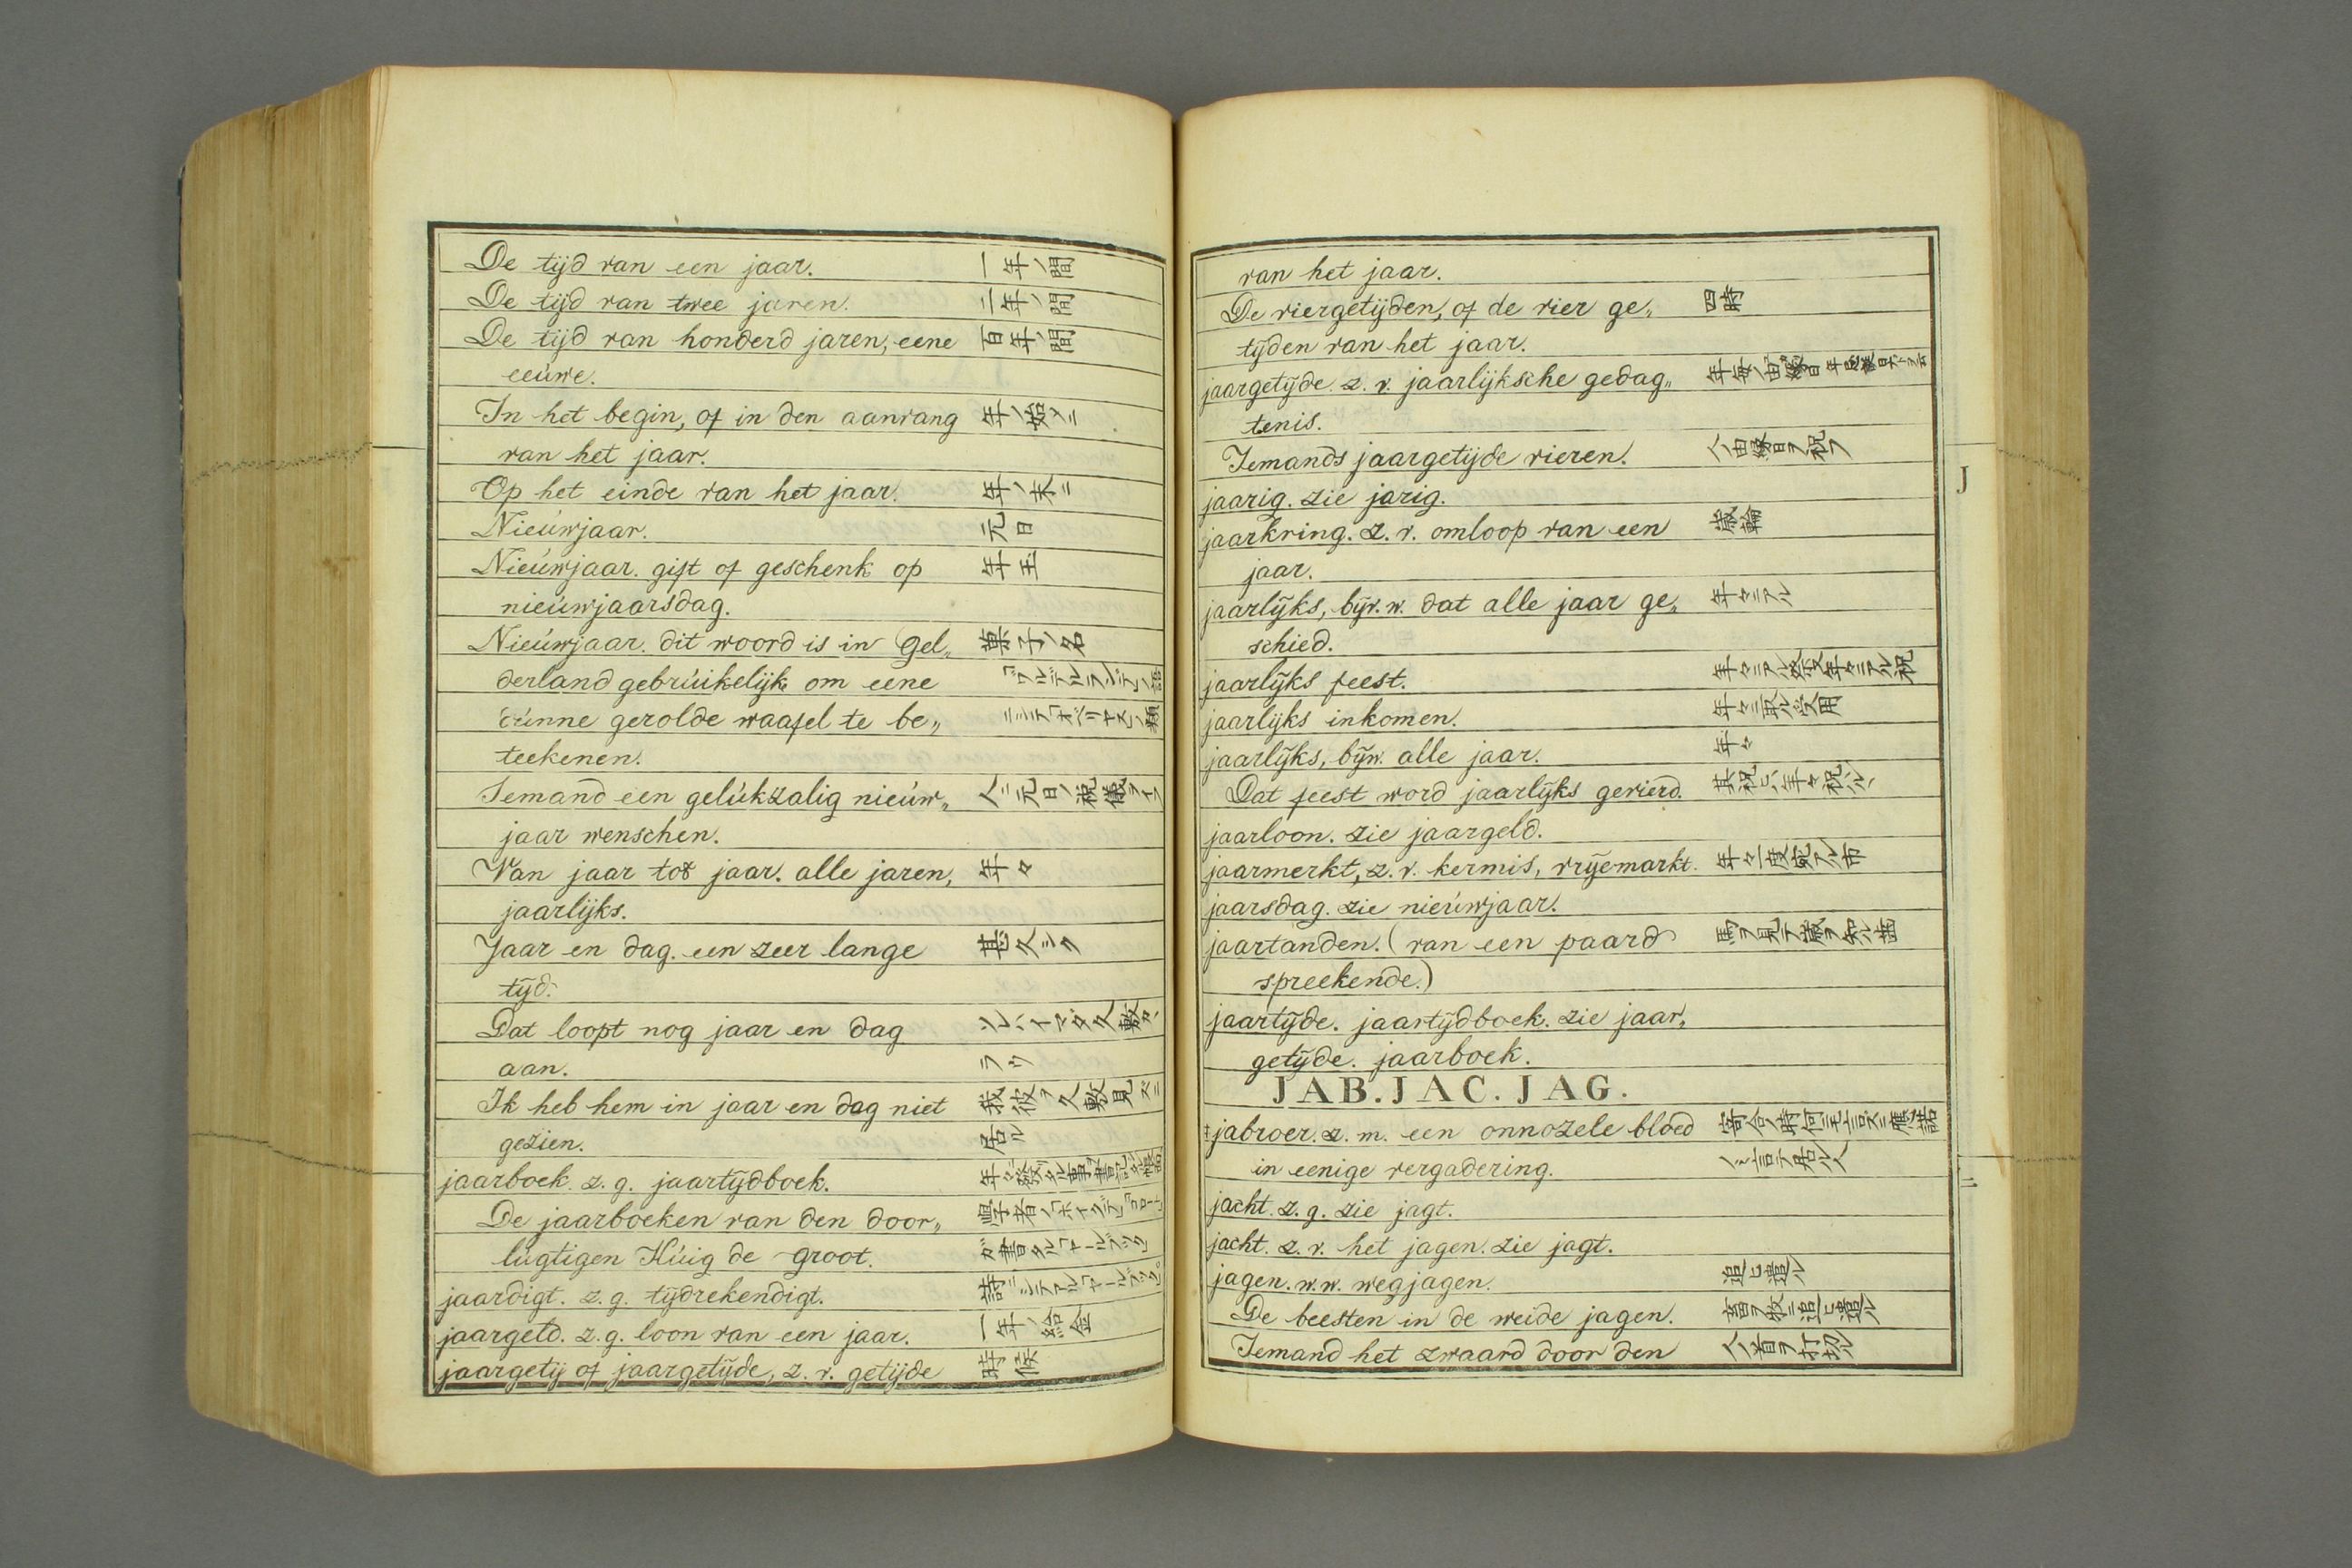 De tijd van een jaar. 一年ノ間
De tijd van twee jaren. 二年ノ間
De tijd van honderd jaren, eene 百年ノ間
eeúwe.
In het begin, of in den aanvang 年ノ始メニ
van het jaar.
Op het einde van het jaar. 年ノ末ニ
Nieúwjaar. 元日
Nieúwjaar. gift of geschenk op 年玉
nieúwjaarsdag.
Nieúwjaar. dit woord is in Gel„ 菓子ノ名
derland gebrúikelijk om eene
dúnne gerolde waafel te be„
teekenen.
Iemand een gelúkzalig nieúw„ 人ニ元日ノ祝儀ヲイフ
jaar wenschen.
Van jaar tot jaar. alle jaren, 年々
jaarlijks.
Jaar en dag. een zeer lange 甚久シク
tijd.
Dat loopt nog jaar en dag ソレハイマダ久敷カ
aan. ラウ
Ik heb hem in jaar en dag niet 我彼ヲ久敷見ズニ
gezien. 居ル
jaarboek. z. g. jaartijdboek.
De jaarboeken van den door„
lúgtigen Húig de Groot.
jaardigt. z. g. tijdrekendigt.
jaargeld. z. g. loon van een jaar. 一年ノ給金
jaargetij of jaargetijde, z. v. getijde 時候
van het jaar.
De viergetijden, of de vier ge„ 四時
tijden van het jaar.
jaargetijde. z. v. jaarlijksche gedag„
tenis.
Iemands jaargetijde vieren. 人ノ由縁日ヲ祝フ
jaarig. zie jarig.
jaarkring. z. v. omloop van een 歳輪
jaar.
jaarlijks, bijv. w. dat alle jaar ge„ 年々ニアル
schied.
jaarlijks feest.
jaarlijks inkomen. 年々ニ取ル受用
jaarlijks, bijw. alle jaar. 年々
Dat feest word jaarlijks gevierd. 其祝ヒハ年々祝ハルヽ
jaarloon. zie jaargeld.
jaarmerkt, z. v. kermis, vrijemarkt. 年々一度宛アル市
jaarsdag. zie nieúwjaar.
jaartanden. (van een paard 馬ヲ見テ歳ヲ知ル歯
spreekende.)
jaartijde. jaartijdboek. zie jaar„
getijde. jaarboek.
J
JAB. JAC. JAG.
‡jabroer. z. m. een onnozele bloed 寄合ノ時何ニモ言ズニ應諾
in eenige vergadering. 〳〵ト言テ居ル人
jacht. z. g. zie jagt.
jacht. z. v. het jagen. zie jagt.
jagen. w. w. wegjagen. 追ヒ遣ル
De beesten in de weide jagen. 畜ヲ牧ニ追ヒ遣ル
Iemand het zwaard door den 人ノ首ヲ打切ル